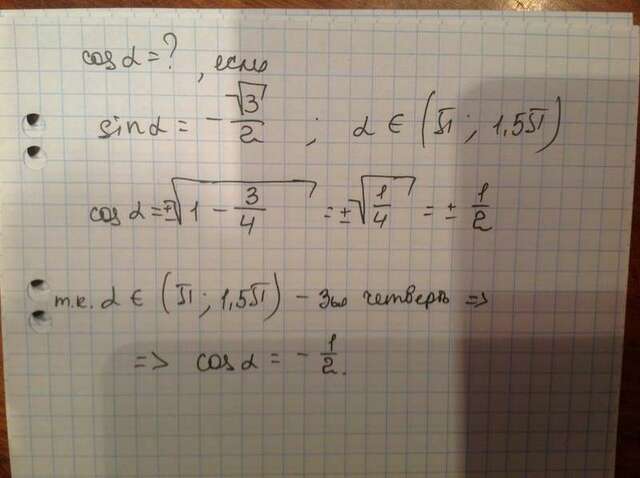 cos α = ? , если
sin α = - √3/2 ; α ∈ (π ; 1,5π)
cos α = ±√(1 - 3/4) = ±√(1/4) = ± 1/2
т.к. α ∈ (π ; 1,5π) - 3ья четверть =>
=> cos α = - 1/2.